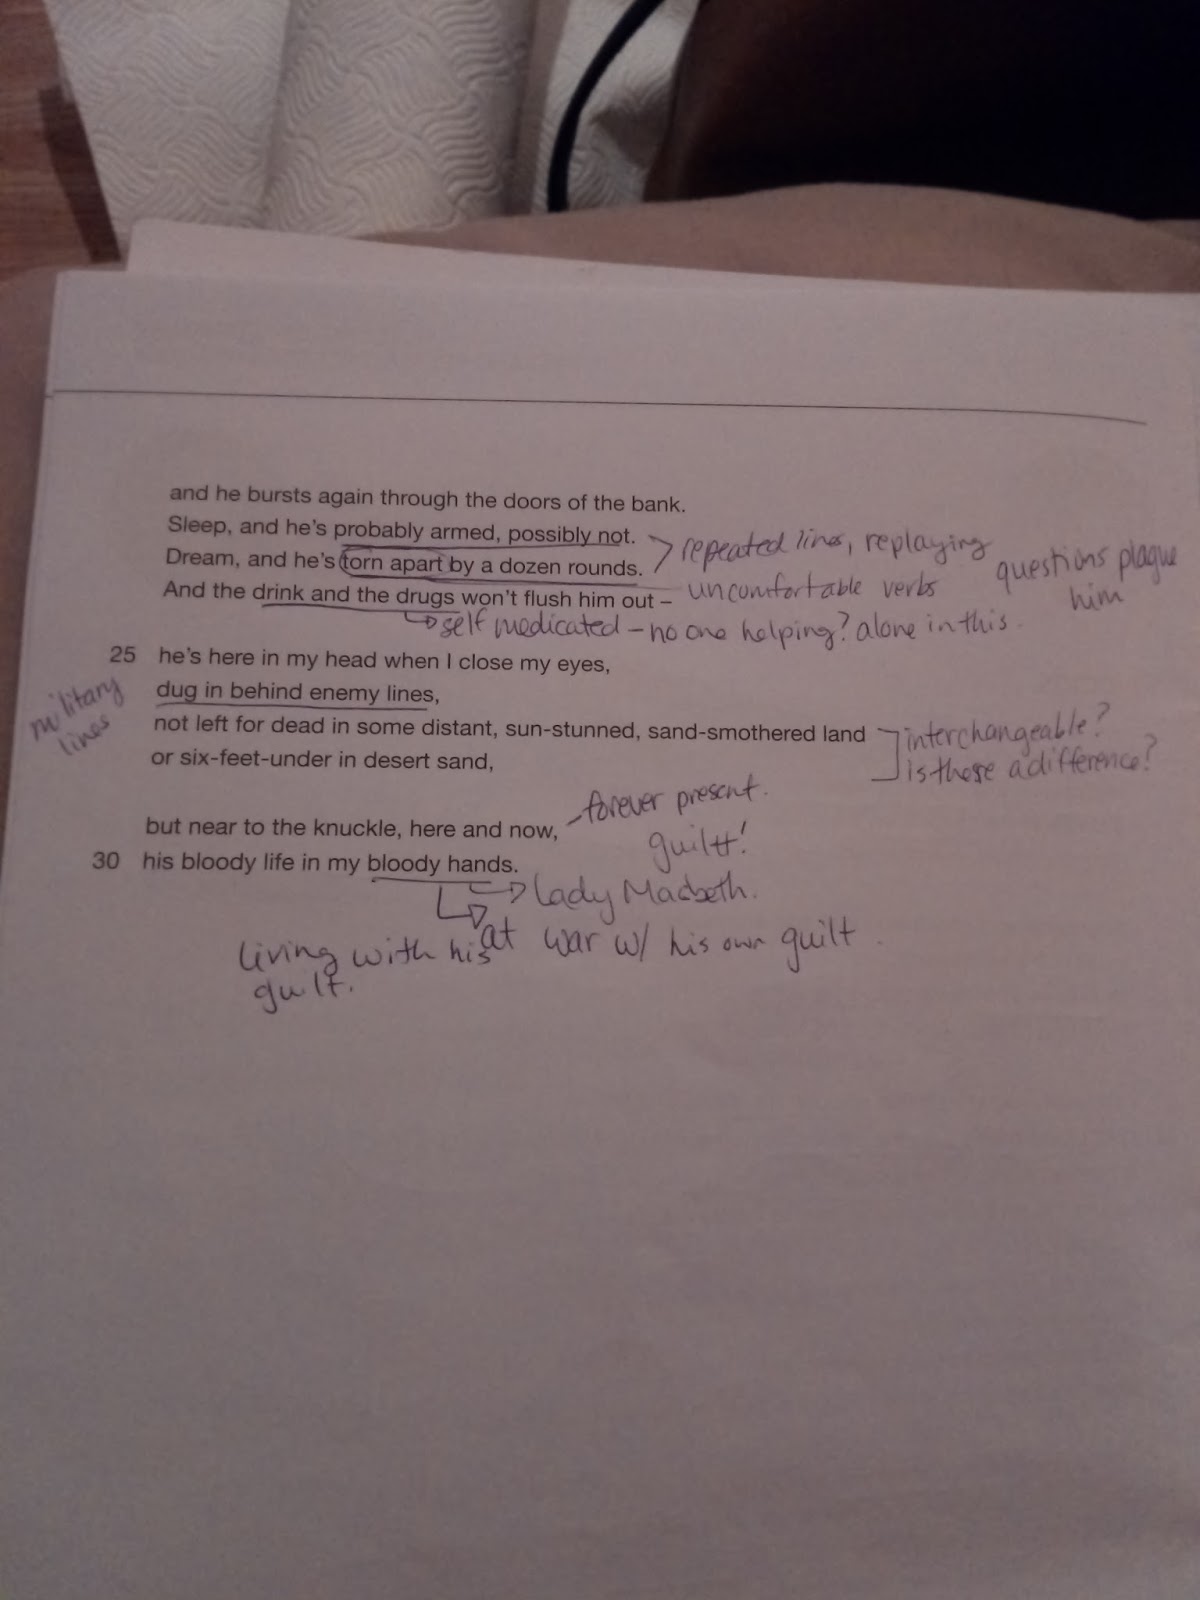 and he bursts again through the doors of the bank.
Sleep, and he's probably armed, possibly not.
Dream, and he's torn apart by a dozen rounds.
And the drink and the drugs won't flush him out –
repeated lines, replaying
uncomfortable verbs
questions plague
him
self medicated – no one helping? alone in this.
25 he's here in my head when I close my eyes,
dug in behind enemy lines,
not left for dead in some distant, sun-stunned, sand-smothered land
or six-feet-under in desert sand,
military
lines
interchangeable?
is there a difference?
but near to the knuckle, here and now,
30 his bloody life in my bloody hands.
forever present.
guilt!
Lady Macbeth.
at war w/ his own guilt.
living with his
guilt.